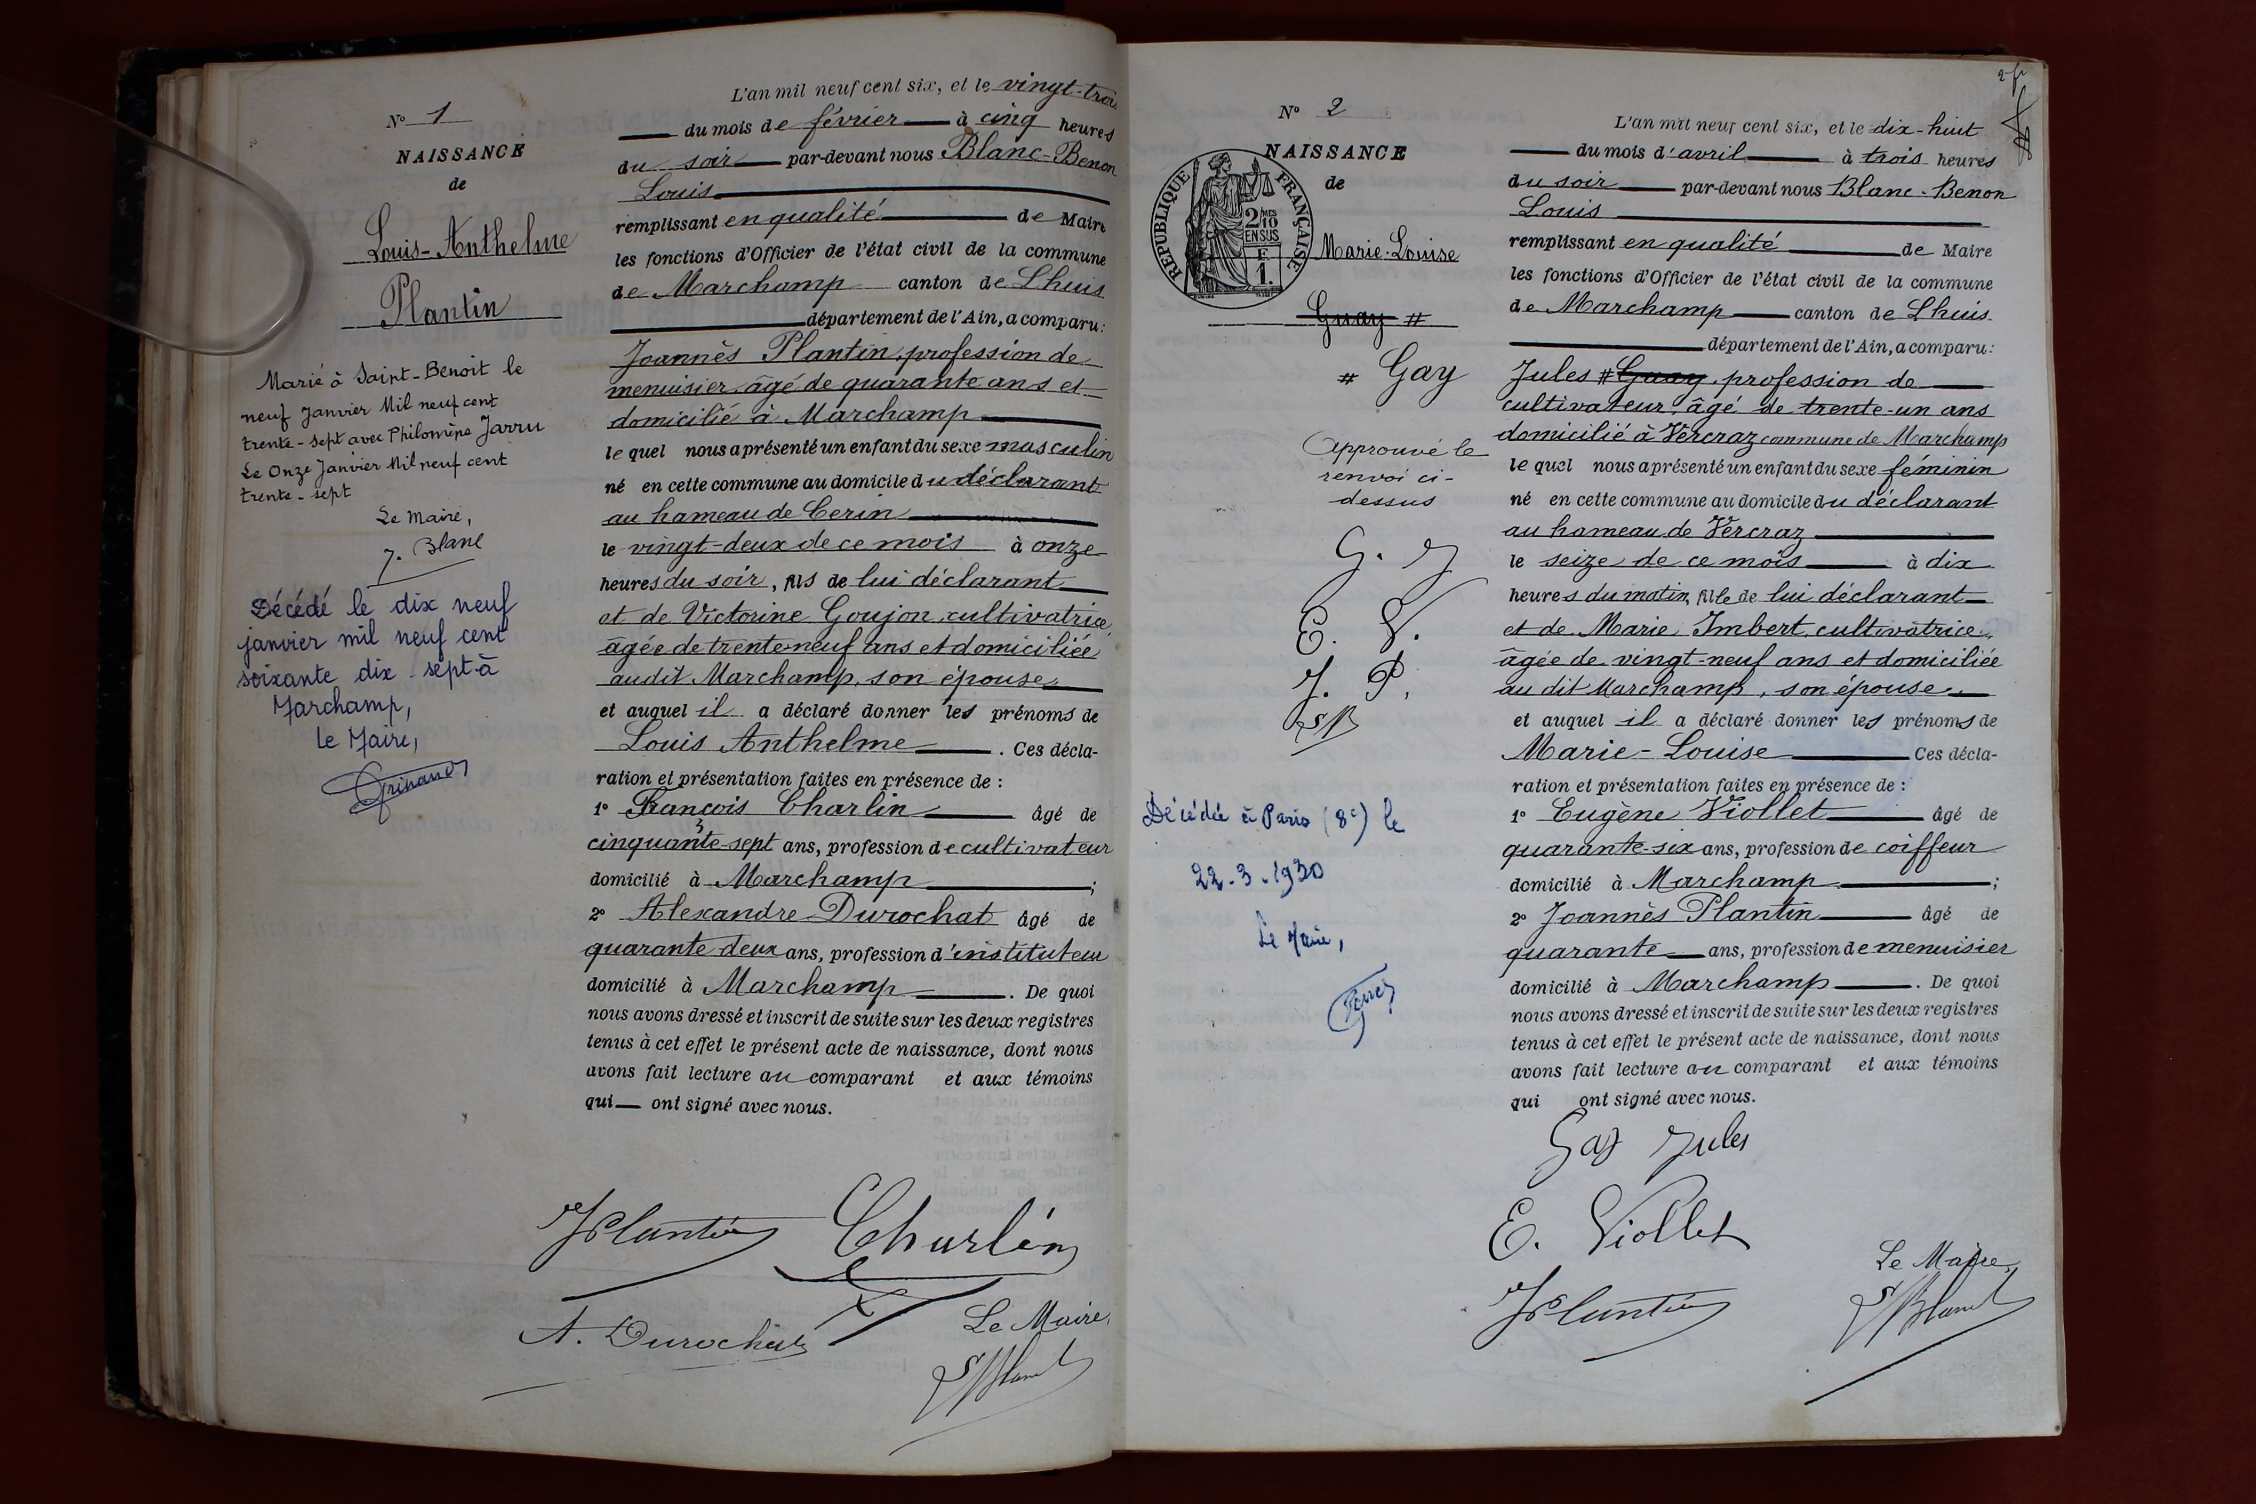 N° 1
NAISSANCE
de
Louis-Anthelme
Plantin
Marié à Saint-Benoit le
neuf Janvier Mil neuf cent
trente-sept avec Philomène Jarru
Le Onze Janvier Mil neuf cent
trente-sept
Le Maire,
J. Blanc
Décédé le dix neuf
janvier mil neuf cent
soixante dix sept à
Marchamp,
Le Maire,
L'an mil neuf cent six, et le vingt-trois
du mois de février à cinq heures
du soir par-devant nous Blanc-Benon
Louis
remplissant en qualité de Maire
les fonctions d'Officier de l'état civil de la commune
de Marchamp canton de Lhuis
département de l'Ain, a comparu:
Joannès Plantin, profession de
menuisier, âgé de quarante ans et
domicilié à Marchamp
lequel nous a présenté un enfant du sexe masculin
né en cette commune au domicile du déclarant
au hameau de Cerin
le vingt-deux de ce mois à onze
heures du soir, fils de lui déclarant
et de Victorine Goujon, cultivatrice,
âgée de trente-neuf ans et domiciliée
audit Marchamp, son épouse,
et auquel il a déclaré donner les prénoms de
Louis Anthelme. Ces décla-
ration et présentation faites en présence de :
1° François Charlin âgé de
cinquante-sept ans, profession de cultivateur
domicilié à Marchamp ;
2° Alexandre Durochat âgé de
quarante-deux ans, profession d'instituteur
domicilié à Marchamp. De quoi
nous avons dressé et inscrit de suite sur les deux registres
tenus à cet effet le présent acte de naissance, dont nous
avons fait lecture au comparant et aux témoins
qui ont signé avec nous.
JPlantin Charlin
A. Durochat
Le Maire,
LBlanc
2 fr
N° 2
NAISSANCE
de
RÉPUBLIQUE FRANÇAISE
2/10 MES
EN SUS
F
1.
Marie-Louise
Guay #
# Gay
Approuvé le
renvoi ci-
dessus
G. J
E. V.
J. P.
LB
Décédée à Paris (8e) le
22.3.1930
Le Maire,
L'an mil neuf cent six, et le dix-huit
du mois d'avril à trois heures
du soir par-devant nous Blanc-Benon
Louis
remplissant en qualité de Maire
les fonctions d'Officier de l'état civil de la commune
de Marchamp canton de Lhuis
département de l'Ain, a comparu:
Jules # Guay, profession de
cultivateur, âgé de trente-un ans
domicilié à Vercraz commune de Marchamp
lequel nous a présenté un enfant du sexe féminin
né en cette commune au domicile du déclarant
au hameau de Vercraz
le seize de ce mois à dix
heures du matin, fille de lui déclarant
et de Marie Imbert, cultivatrice,
âgée de vingt-neuf ans et domiciliée
au dit Marchamp, son épouse,
et auquel il a déclaré donner les prénoms de
Marie-Louise Ces décla-
ration et présentation faites en présence de :
1° Eugène Viollet âgé de
quarante-six ans, profession de coiffeur
domicilié à Marchamp ;
2° Joannès Plantin âgé de
quarante ans, profession de menuisier
domicilié à Marchamp. De quoi
nous avons dressé et inscrit de suite sur les deux registres
tenus à cet effet le présent acte de naissance, dont nous
avons fait lecture au comparant et aux témoins
qui ont signé avec nous.
Gay Jules
E. Viollet
JPlantin
Le Maire,
LBlanc